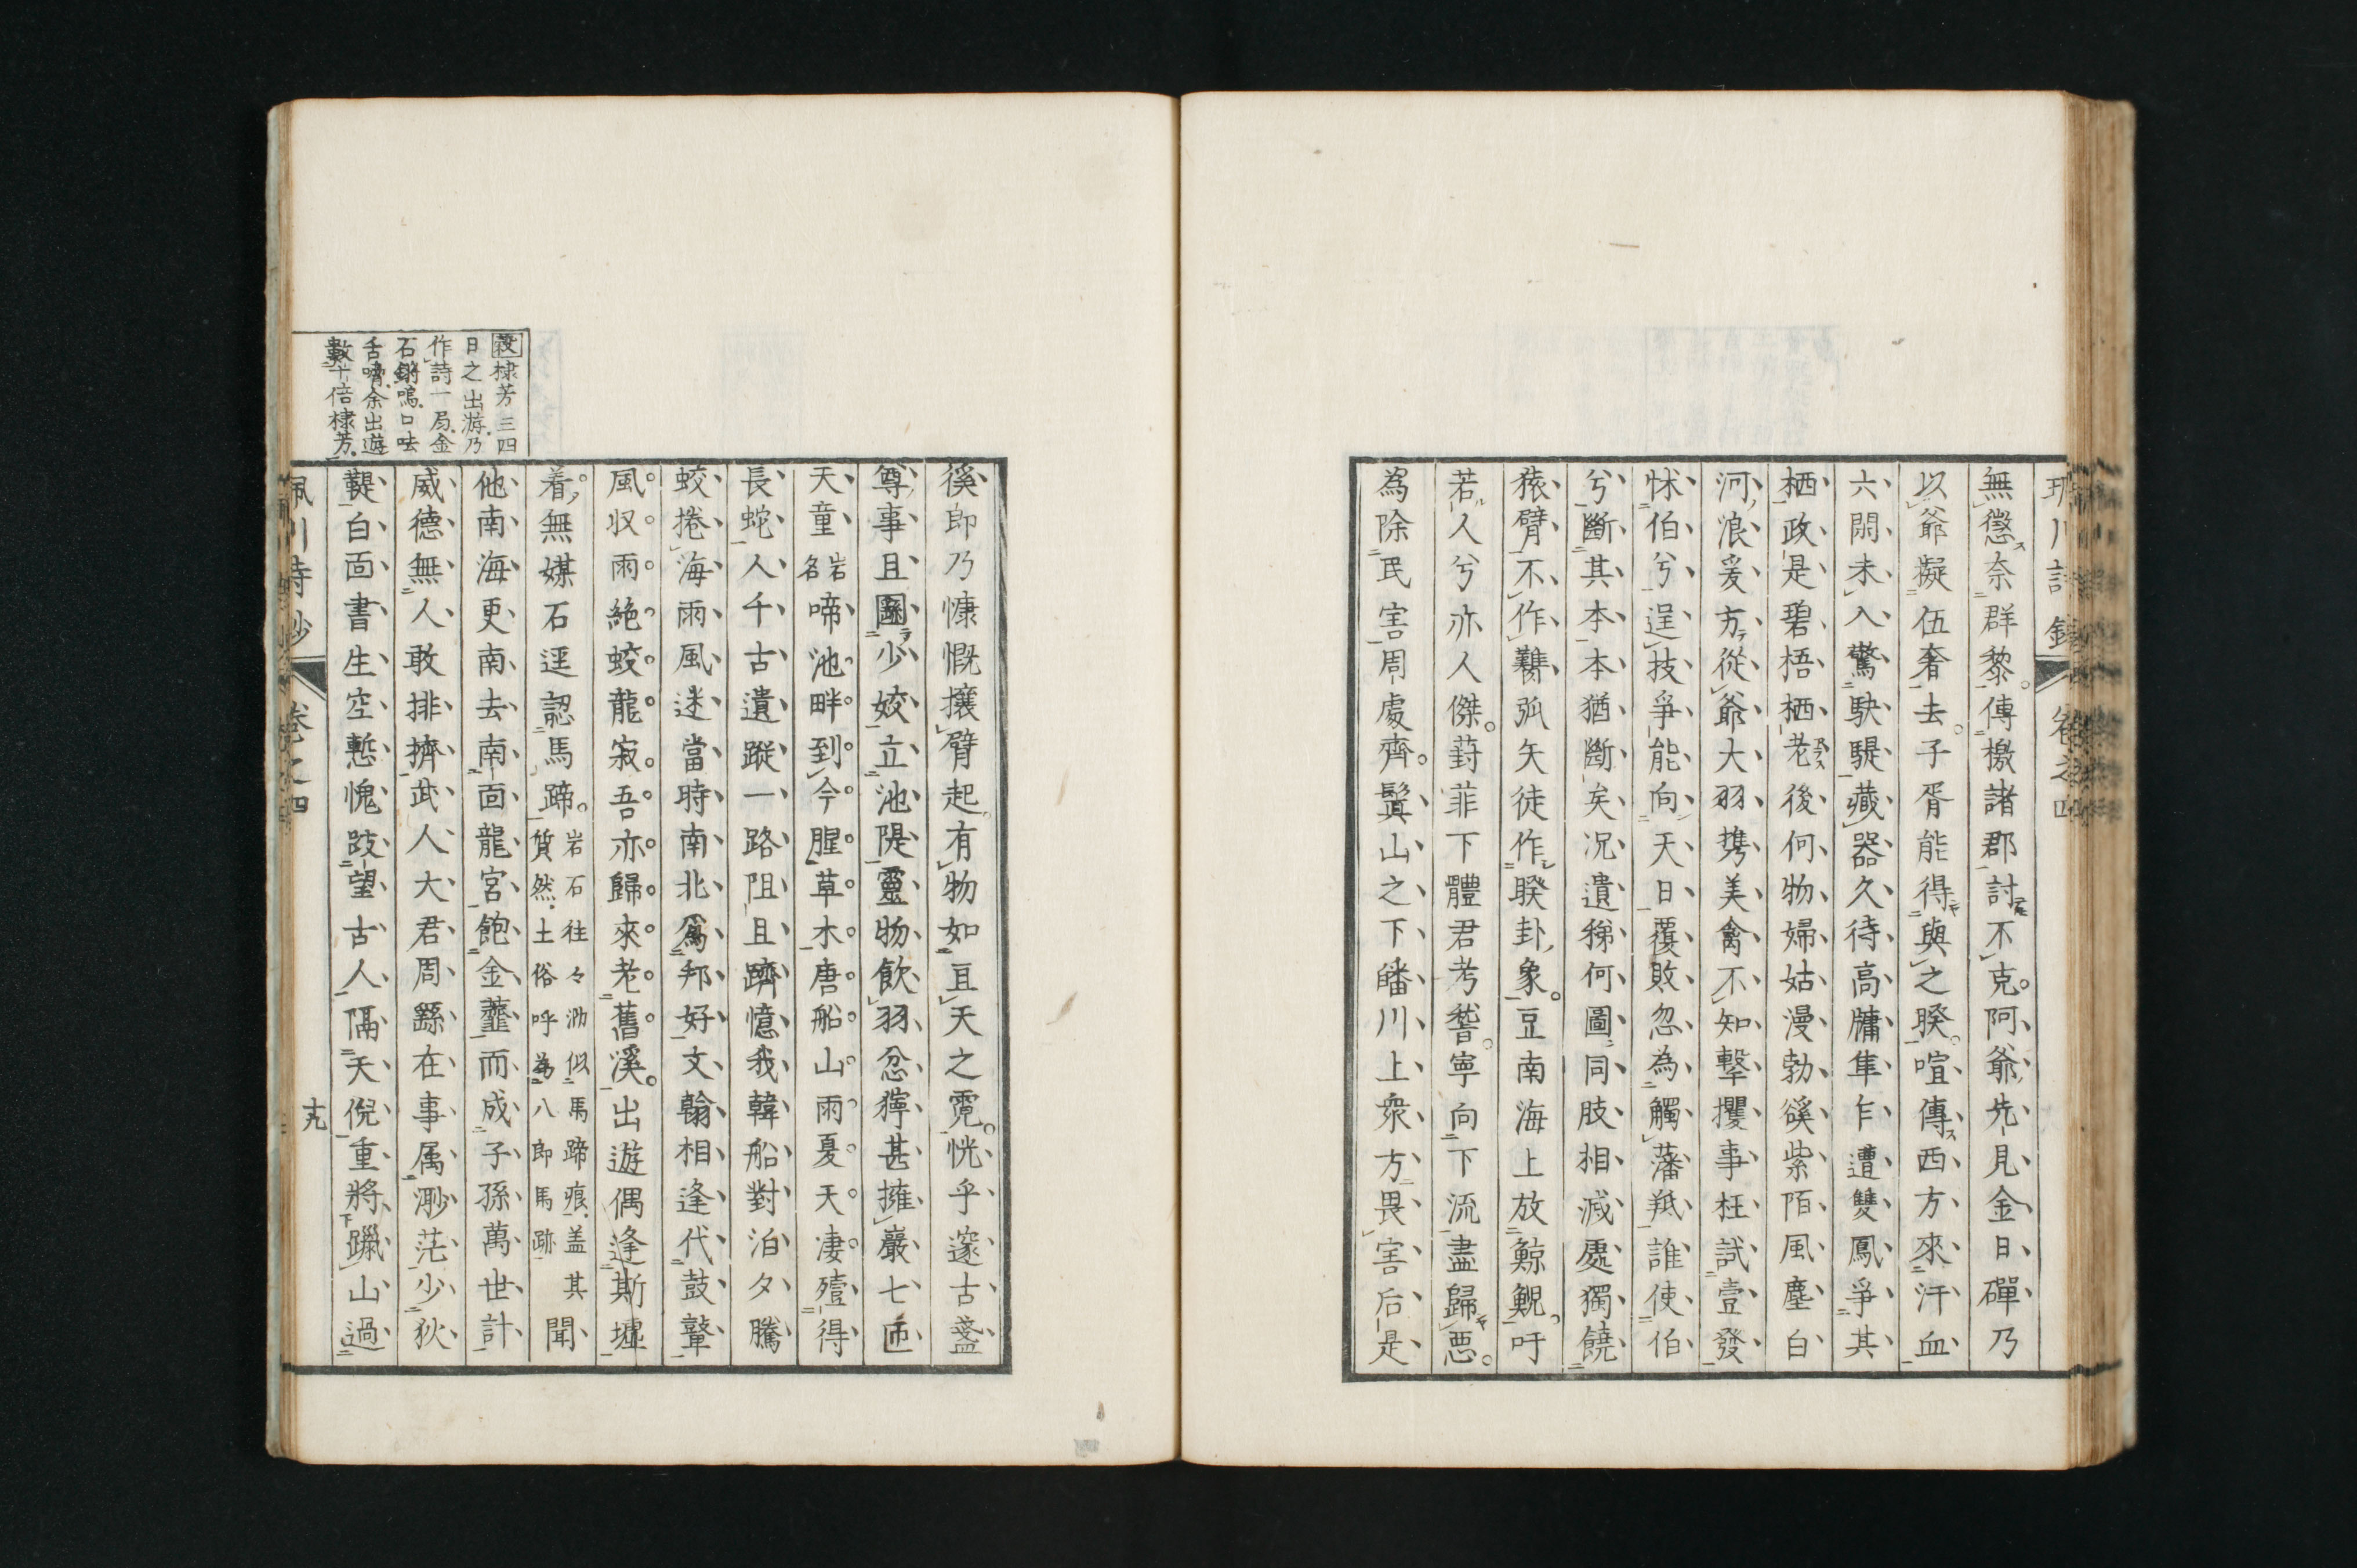 無懲奈群黎傳檄諸郡討不克阿爺先見金日磾乃
以爺擬伍奢去子胥能得與之暌喧傳西方來汗血
六閑未入驚駃騠藏器久待高牅隼乍遭雙鳳爭其
栖政是碧梧栖老後何物婦姑漫勃谿紫陌風塵白
河浪爰方從爺大羽携美禽不知擊攫事枉試壹發
怵伯兮逞技爭能向天日覆敗忽為觸藩羝誰使伯
兮斷其本本猶斷矣况遺稊何圖同肢相減處獨饒
猿臂不作鷄弧矢徒作暌卦象豆南海上放鯨鯢吁
若人兮亦人傑葑菲下體君考誓寧向下流盡歸悪
為除民害周處齊鬒山之下皤川上衆方畏害后是
徯即乃慷慨攘臂起有物如亙天之霓恍乎邃古盞
尊事且圖少姣立池隄靈物飲羽忿獰甚擁巖七匝
天童岩名啼池畔到今腥草木唐船山雨夏天凄殪得
長蛇人千古遺蹤一路阻且躋憶我韓船對泊夕騰
蛟捲海雨風迷當時南北為邦好文翰相逢代鼓鼙
風収雨絶蛟龍寂吾亦歸來老舊溪出遊偶逢斯墟
着無媒石逕認馬蹄岩石往々泐似馬蹄痕盖其質然土俗呼為八郎馬跡聞
他南海更南去南面龍宮飽金虀而成子孫萬世計
威德無人敢排擠武人大君周繇在事属渺茫少狄
鞮白面書生空慙愧跂望古人隔天倪重將躐山過
棣芳三四
日之出游乃
作詩一局金
石鏘鳴口呿
舌嚌余出遊
數十倍棣芳
卷之四
十九